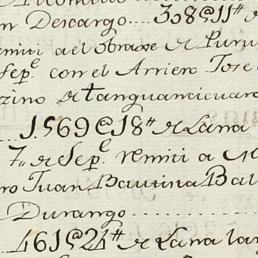 n Descargo........ 308@11 tt
remiti a el Obraxe de Puru
Sep.e con el Arriero Jose
zino de tanguancicuaro
1569@18 tt de Lana
7,, de Sep.e remiti a
ro Juan Bautina Bal
Durango........
461@24 tt de Lana lav